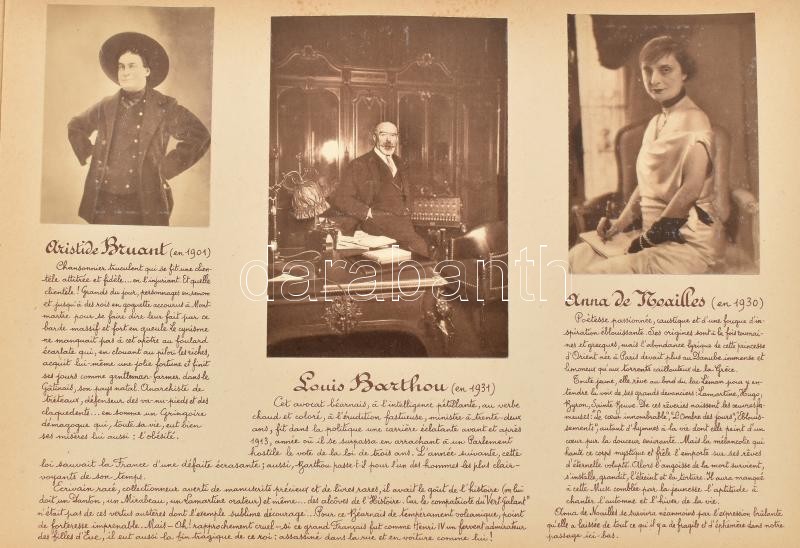 Aristide Bruant (en 1901)
Chansonnier truculent qui se fit une clien-
tèle attitrée et fidèle... en l'injuriant. Et quelle
clientèle ! Grands du jour, personnages notoires
et jusqu'à des rois en goguette accourus à Mont-
martre pour se faire dire leur fait par ce
barde massif et fort en gueule. Le cynisme
ne manquait pas à cet apôtre au foulard
écarlate qui, en clouant au pilou les riches,
acquit lui-même une jolie fortune et finit
ses jours comme gentleman-farmer dans le
Gâtinais, son pays natal. Anarchiste de
tréteaux, défenseur des va-nu-pieds et des
claquedents... en somme un Gringoire
démagogue qui, toute sa vie, eut bien
ses misères lui aussi : l'obésité.
Louis Barthou (en 1931)
Cet avocat béarnais, à l'intelligence pétillante, au verbe
chaud et coloré, à l'érudition fastueuse, ministre à trente-deux
ans, fit dans la politique une carrière éclatante avant et après
1913, année où il se surpassa en arrachant à un Parlement
hostile le vote de la loi de trois ans. L'année suivante, cette
loi sauvait la France d'une défaite écrasante ; aussi, Barthou passe-t-il pour l'un des hommes les plus clair-
voyants de son temps.
Écrivain racé, collectionneur averti de manuscrits précieux et de livres rares, il avait le goût de l'histoire (on lui
doit un Danton, un Mirabeau, un Lamartine orateur) et même... des alcôves de l'Histoire. Car la compacité du "Vert Galant"
n'était pas de ces vertus austères dont l'exemple sublime décourage... Pour ce Béarnais de tempérament volcanique, point
de forteresse imprenable. Mais - Oh ! rapprochement cruel - si ce grand Français fut comme Henri IV un fervent admirateur
des filles d'Ève, il eut aussi la fin tragique de ce roi : assassiné dans la rue et en voiture comme lui !
Anna de Noailles (en 1930)
Poétesse passionnée, caustique et d'une fougue d'in-
spiration éblouissante. Ses origines sont à la fois roumai-
nes et grecques, mais l'abondance lyrique de cette princesse
d'Orient née à Paris devait plus au Danube immense et
limoneux qu'aux torrents caillouteux de la Grèce.
Toute jeune, elle rêve au bord du lac Léman pour y en-
tendre la voix de ses grands devanciers : Lamartine, Hugo,
Byron, Sainte Beuve. De ces rêveries naissent les œuvres fa-
meuses : "Le cœur innombrable", "L'Ombre des jours", "Éblouis-
sements", autant d'hymnes à la vie dont elle peint d'un
cœur pur la douceur enivrante. Mais la mélancolie qui
hante ce corps mystique et frêle l'emporte sur ses rêves
d'éternelle volupté. Alors l'angoisse de la mort survient,
s'installe, grandit, l'étreint et la torture. Il aura manqué
à cette Muse comblée par la jeunesse l'aptitude à
chanter l'automne et l'hiver de la vie.
Anna de Noailles se survivra néanmoins par l'expression brûlante
qu'elle a laissée de tout ce qu'il y a de fragile et d'éphémère dans notre
passage ici-bas.
darabanth